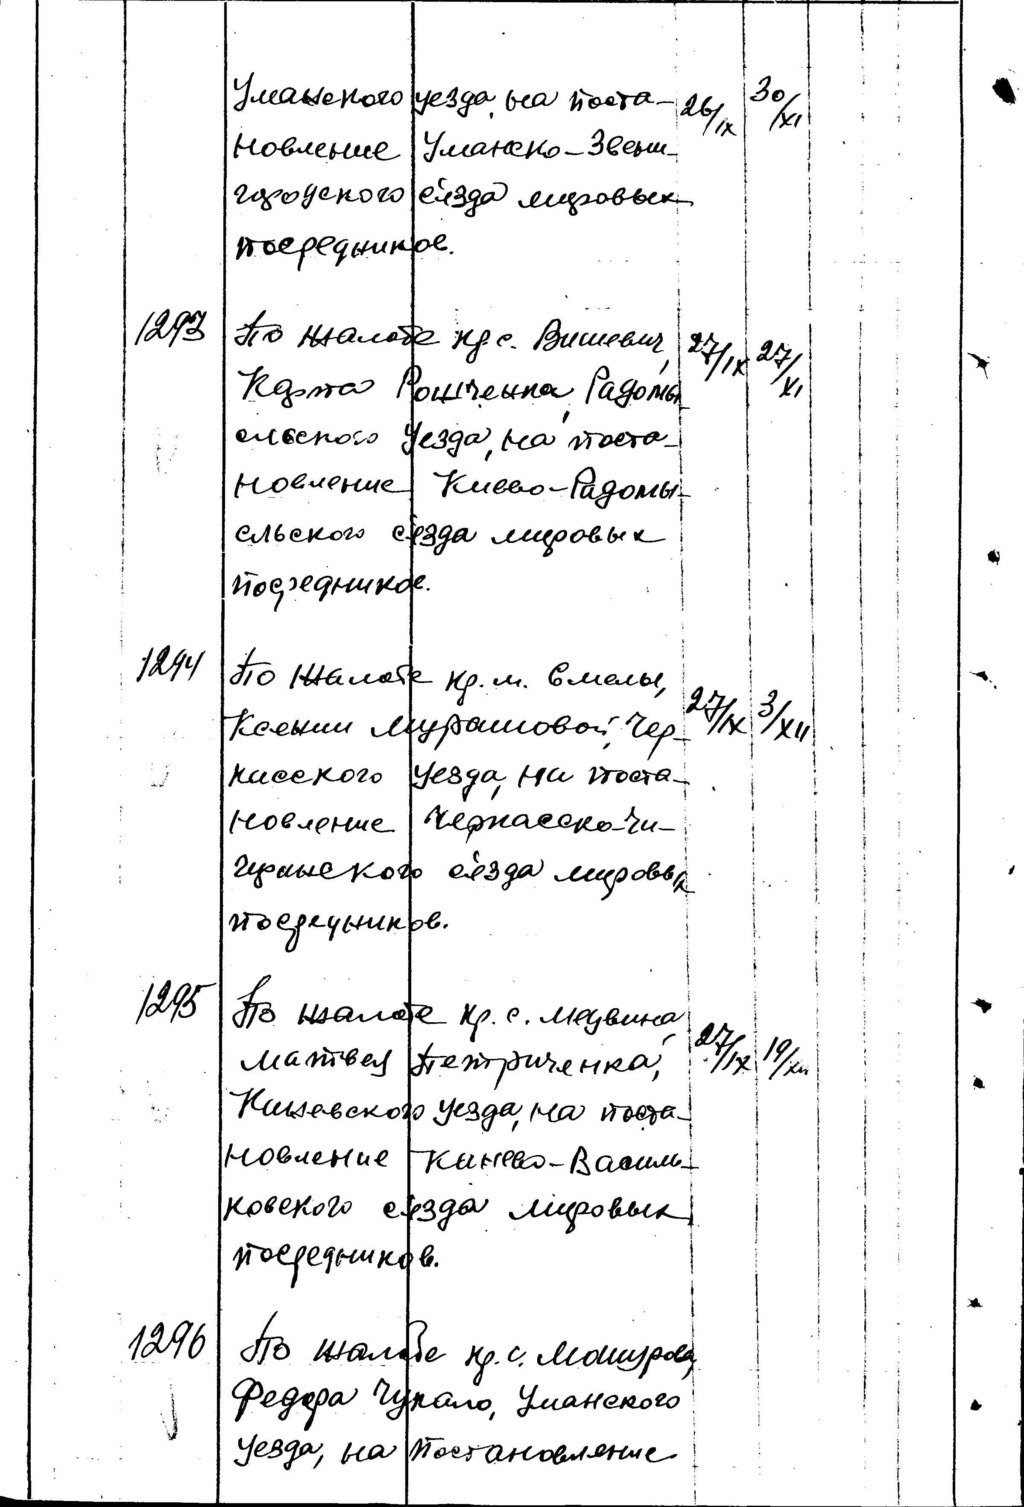 Уманского уезда, на поста- 26/IX 30/XI
новление Уманско-Звени-
городского съезда мировых
посредников.
1293 По жалобе кр. с. Вишевич, 27/IX 27/XI
Карпа Рошченка, Радомы-
сльского уезда, на поста-
новление Киево-Радомы-
сльского съезда мировых
посредников.
1294 По жалобе кр. м. Смелы, 27/IX 3/XII
Ксении Мурашовой, Чер-
касского уезда, на поста-
новление Черкасско-Чи-
гиринского съезда мировых
посредников.
1295 По жалобе кр. с. Медвина, 27/IX 19/XII
Матвея Петриченка,
Каневского уезда, на поста-
новление Канево-Василь-
ковского съезда мировых
посредников.
1296 По жалобе кр. с. Машурова,
Федора Чукало, Уманского
уезда, на постановление